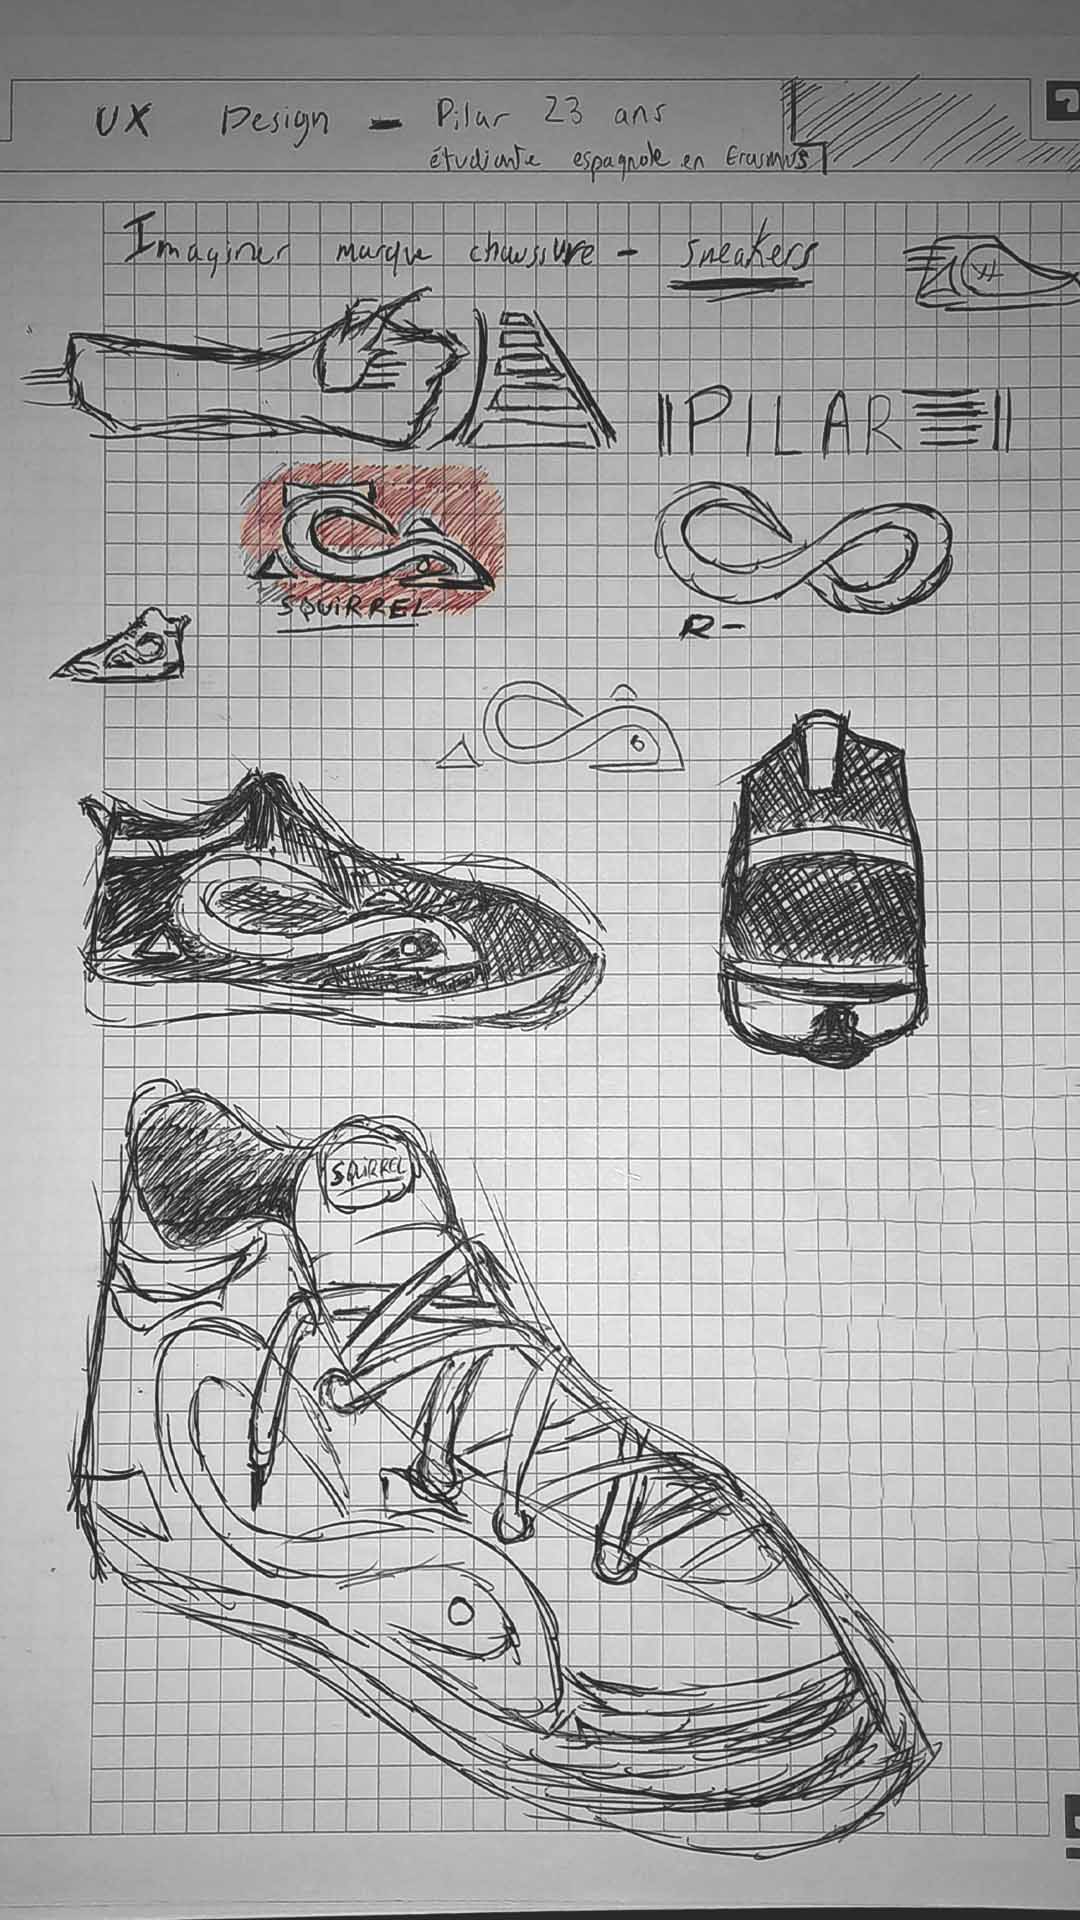 UX Design - Pilar 23 ans
étudiante espagnole en Erasmus
Imaginer marque chaussure - sneakers
PILAR
SQUiRREL
R-
SQUIRREL